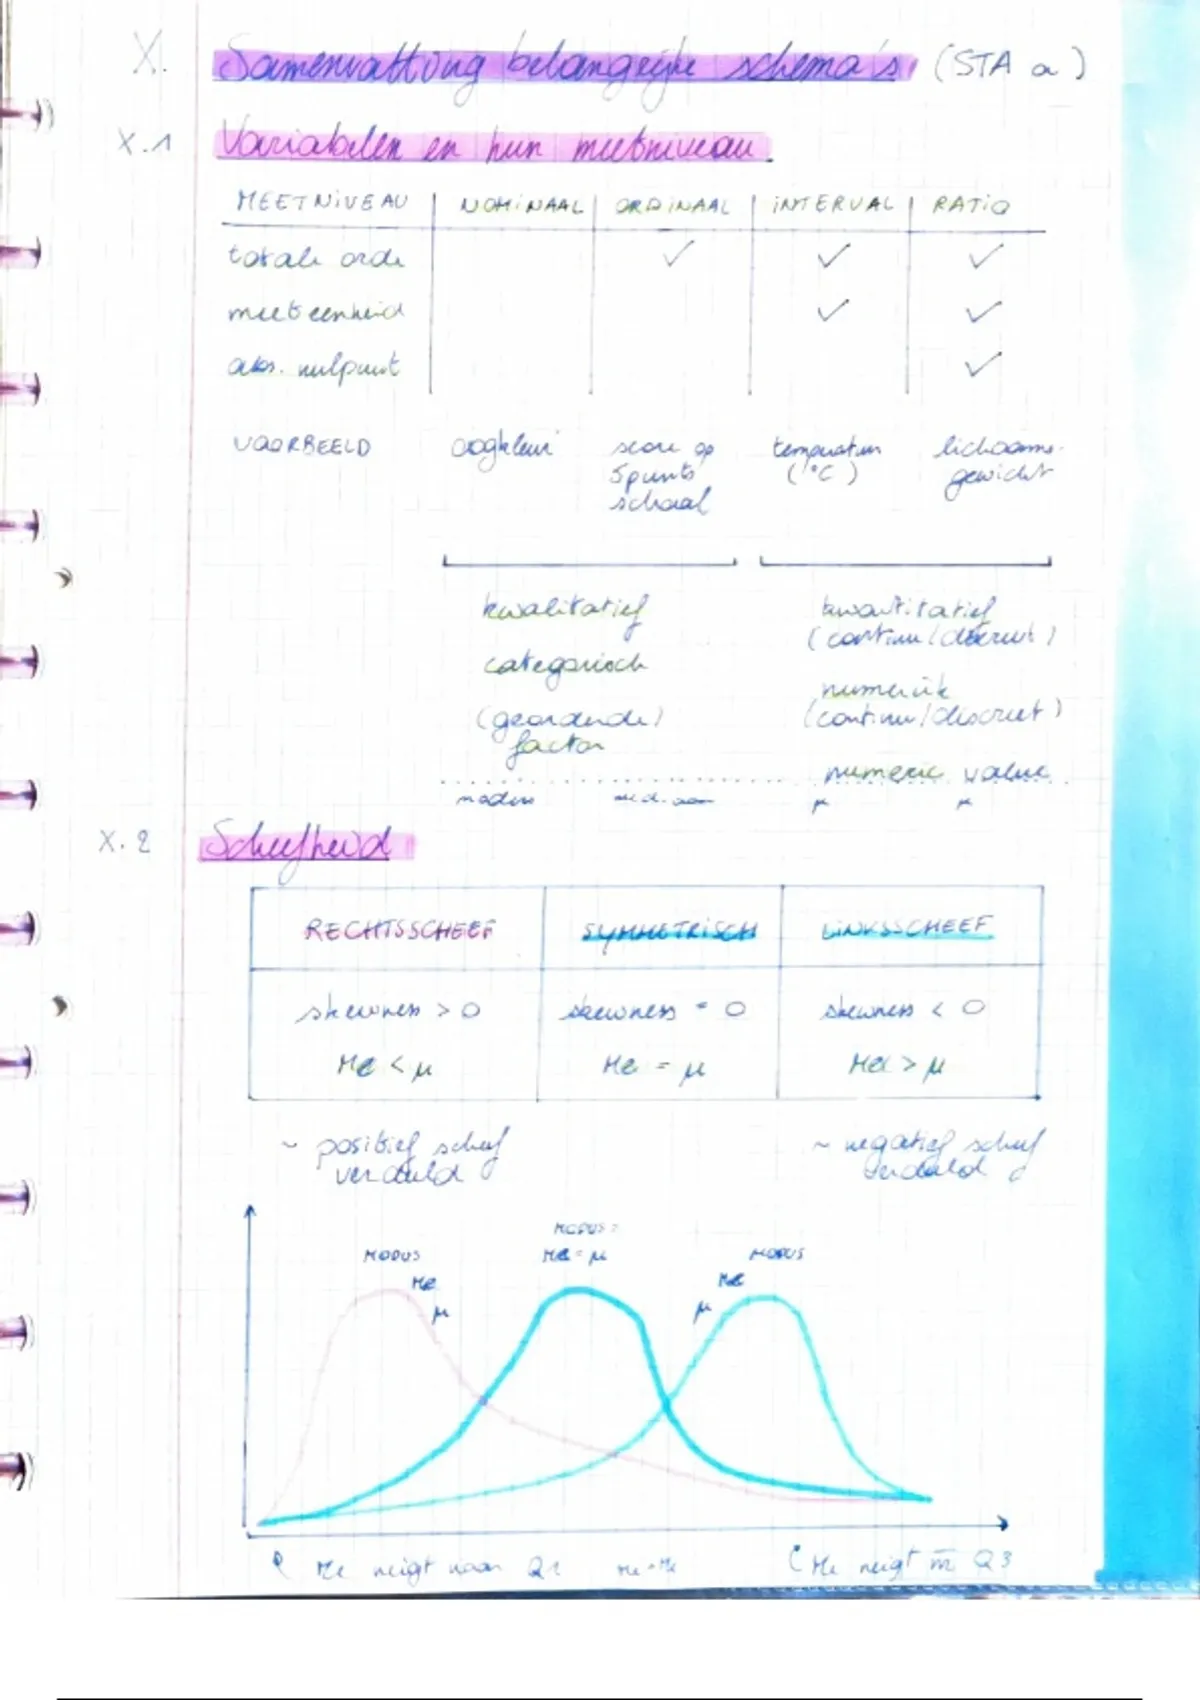 X. Samenvatting belangrijke schema's (STA a)
X.1 Variabelen en hun meetniveau.
MEETNIVEAU NOMINAAL ORDINAAL INTERVAL RATIO
totale orde ✓ ✓ ✓
meeteenheid ✓ ✓
abs. nulpunt ✓
VOORBEELD oogkleur score op temperatuur lichaams-
5punts (°C) gewicht
schaal
kwalitatief kwantitatief
(continu/discreet)
categorisch
numeriek
(geordende) (continu/discreet)
factor
numeric value
modus mediaan μ μ
X.2 Scheefheid
RECHTSSCHEEF SYMMETRISCH LINKSSCHEEF
skewness > 0 skewness = 0 skewness < 0
Me < μ Me = μ Me > μ
~ positief scheef ~ negatief scheef
verdeeld verdeeld
MODUS =
MODUS Me = μ MODUS
Me Me
μ μ
Me neigt naar Q1 Me neigt n Q3